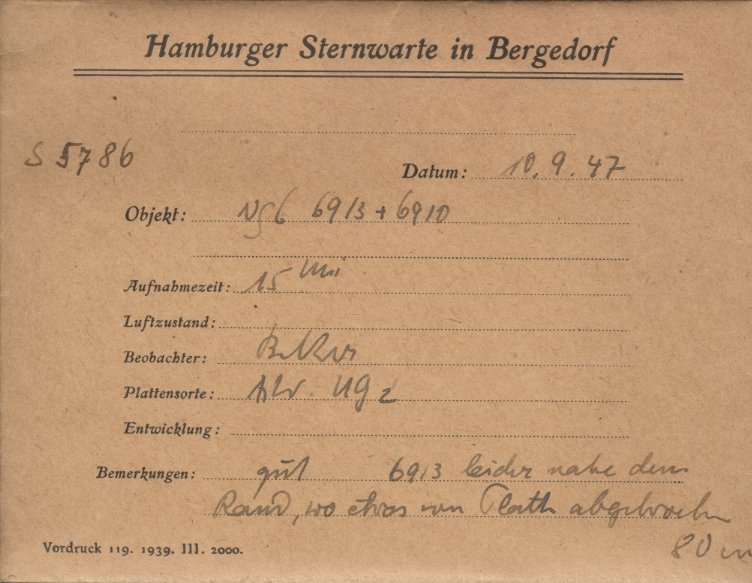 Hamburger Sternwarte in Bergedorf
S 5786
Datum: 10. 9. 47
Objekt: NGC 6913 + 6910
Aufnahmezeit: 15 min
Luftzustand:
Beobachter:
Plattensorte: UG 2
Entwicklung:
Bemerkungen: gut 6913 leider nahe dem
Rand, wo etwas von Platte abgebrochen
80 cm
Vordruck 119. 1939. III. 2000.